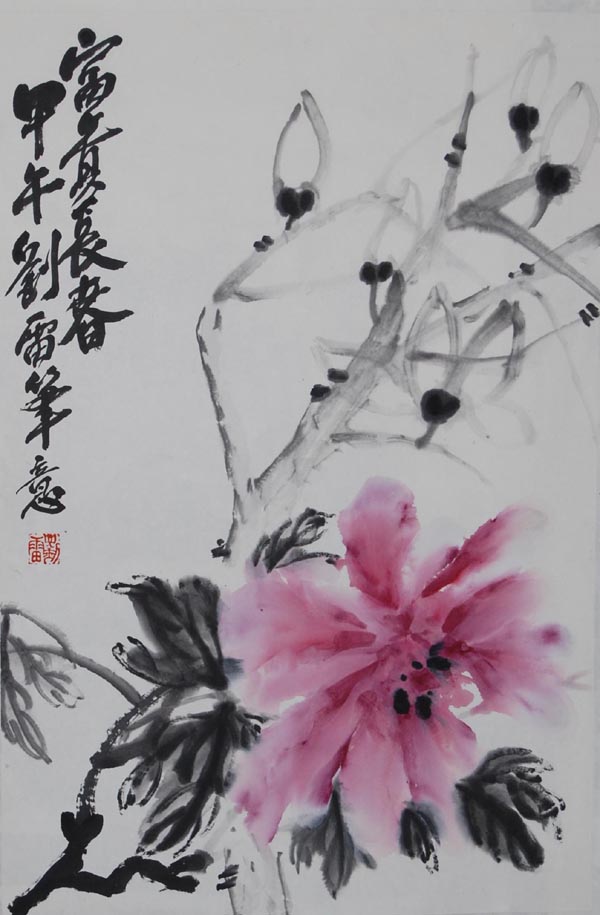 富貴長春
甲午劉雷筆意
劉雷